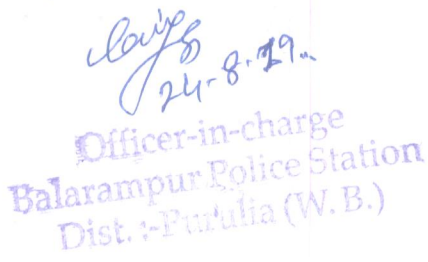 24-8-19..
Officer-in-charge
Balarampur Police Station
Dist. :-Purulia (W. B.)